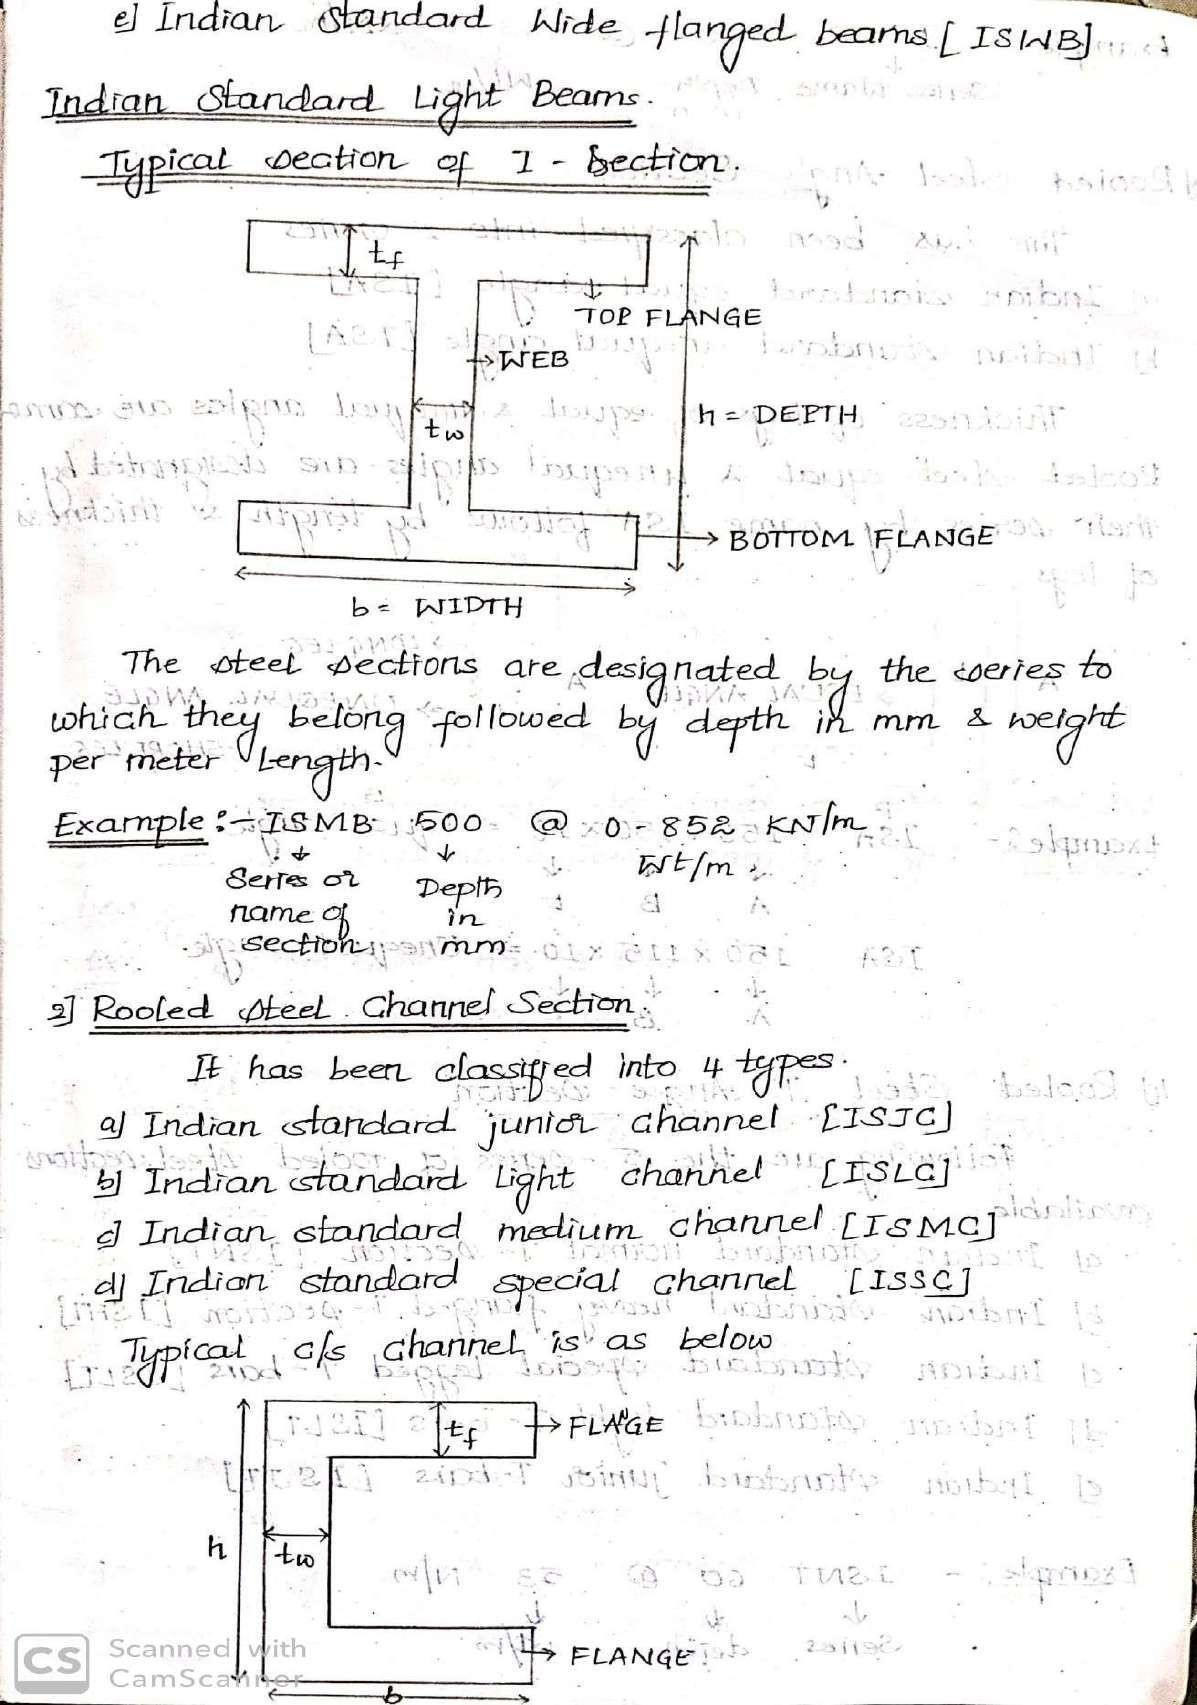 e] Indian Standard Wide flanged beams [ISWB]
Indian Standard Light Beams.
Typical section of I - Section.
tf
TOP FLANGE
WEB
tw
h = DEPTH
BOTTOM FLANGE
b = WIDTH
The steel sections are designated by the series to
which they belong followed by depth in mm & weight
per meter Length.
Example :- ISMB 500 @ 0-852 KN/m
Series or Depth Wt/m
name of in
section mm
2] Rooled Steel Channel Section.
It has been classified into 4 types.
a] Indian standard junior channel [ISJC]
b] Indian standard Light channel [ISLC]
c] Indian standard medium channel [ISMC]
d] Indian standard special channel [ISSC]
Typical c/s channel is as below
tf
FLANGE
h
tw
FLANGE
b
CS Scanned with
CamScanner